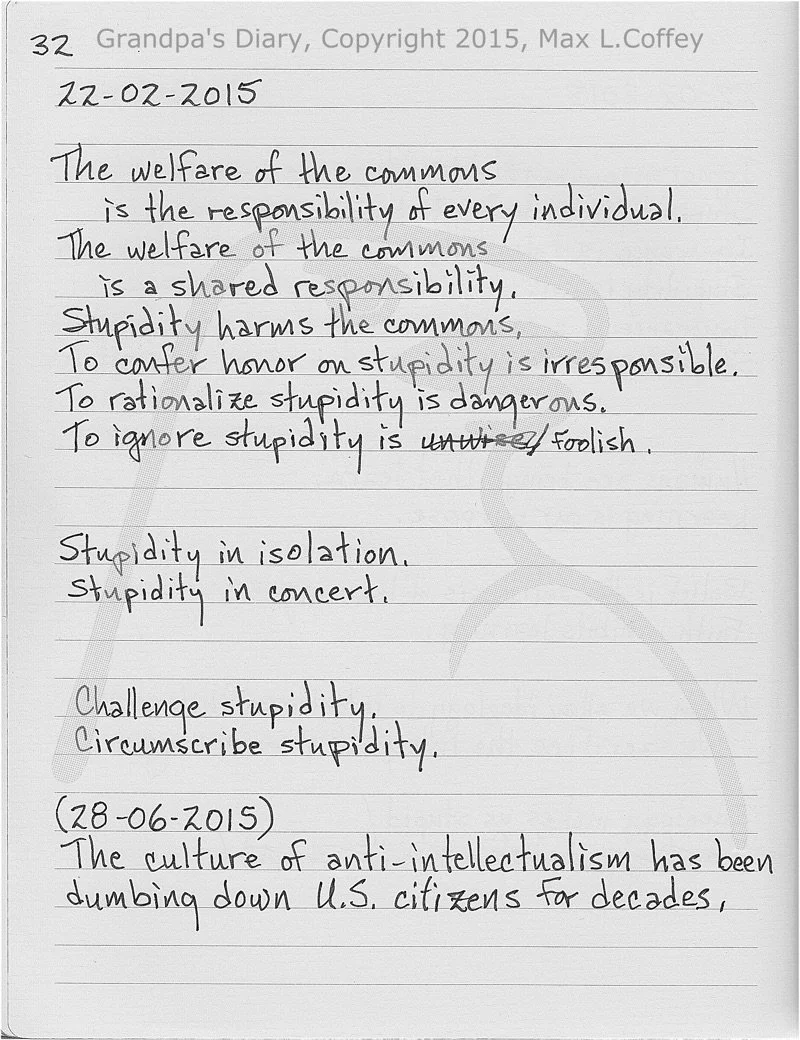 32 Grandpa's Diary, Copyright 2015, Max L.Coffey
22-02-2015
The welfare of the commons
is the responsibility of every individual.
The welfare of the commons
is a shared responsibility.
Stupidity harms the commons,
To confer honor on stupidity is irresponsible.
To rationalize stupidity is dangerous.
To ignore stupidity is unwise/ foolish.
Stupidity in isolation.
Stupidity in concert.
Challenge stupidity.
Circumscribe stupidity.
(28-06-2015)
The culture of anti-intellectualism has been
dumbing down U.S. citizens for decades,